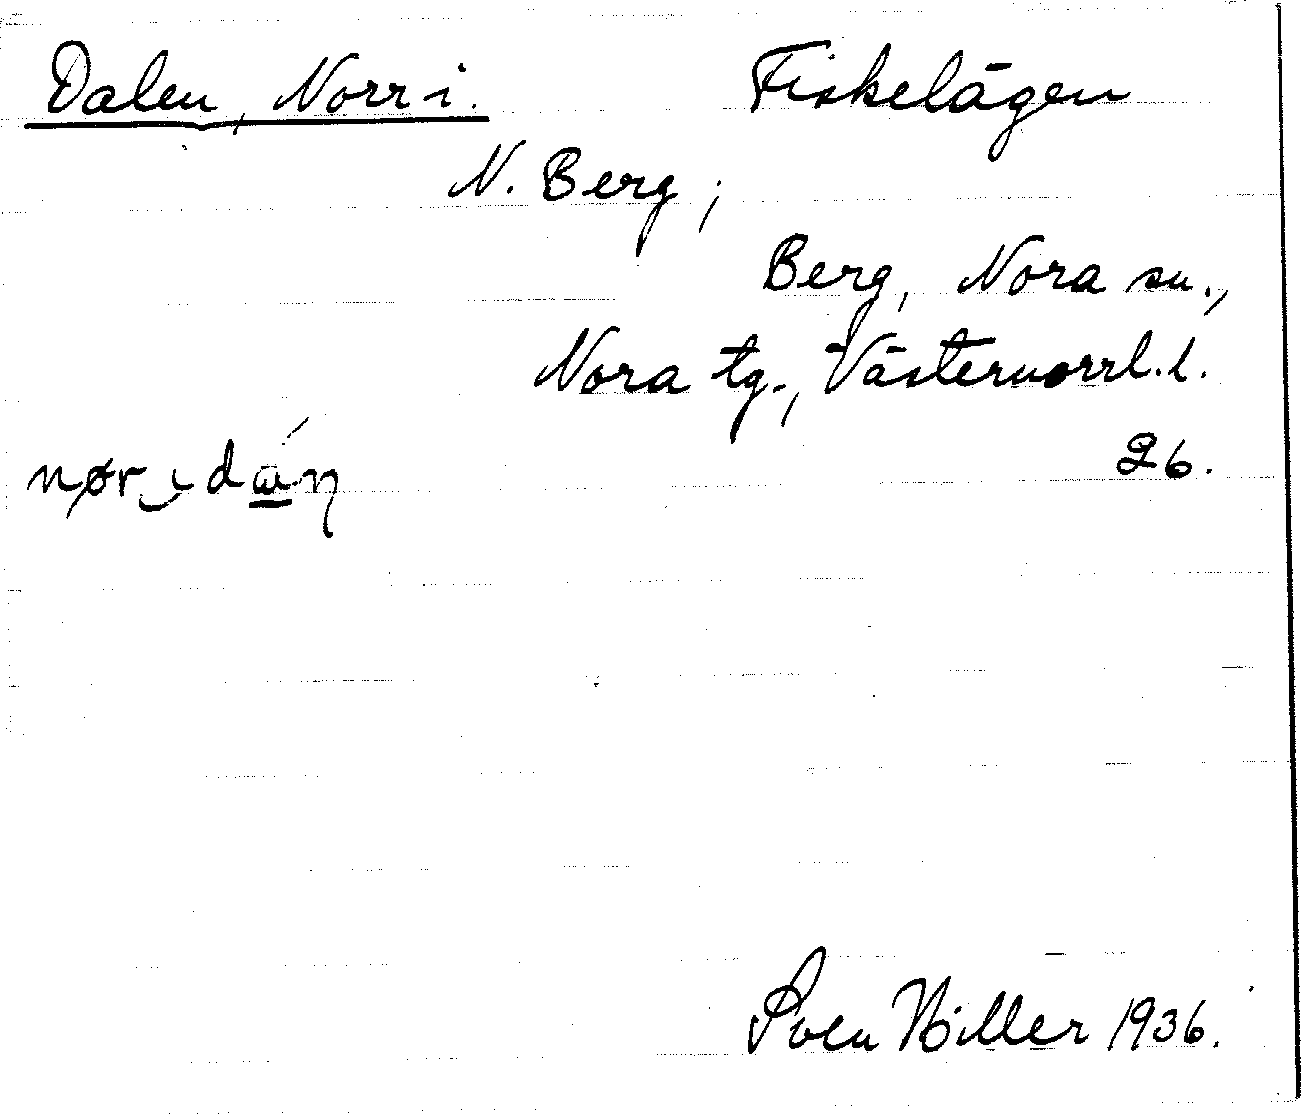 Dalen, Norr i. Fiskelägen
N. Berg,
Berg, Nora sn.,
Nora tg., Västernorrl. l.
26.
Sven Hiller 1936.